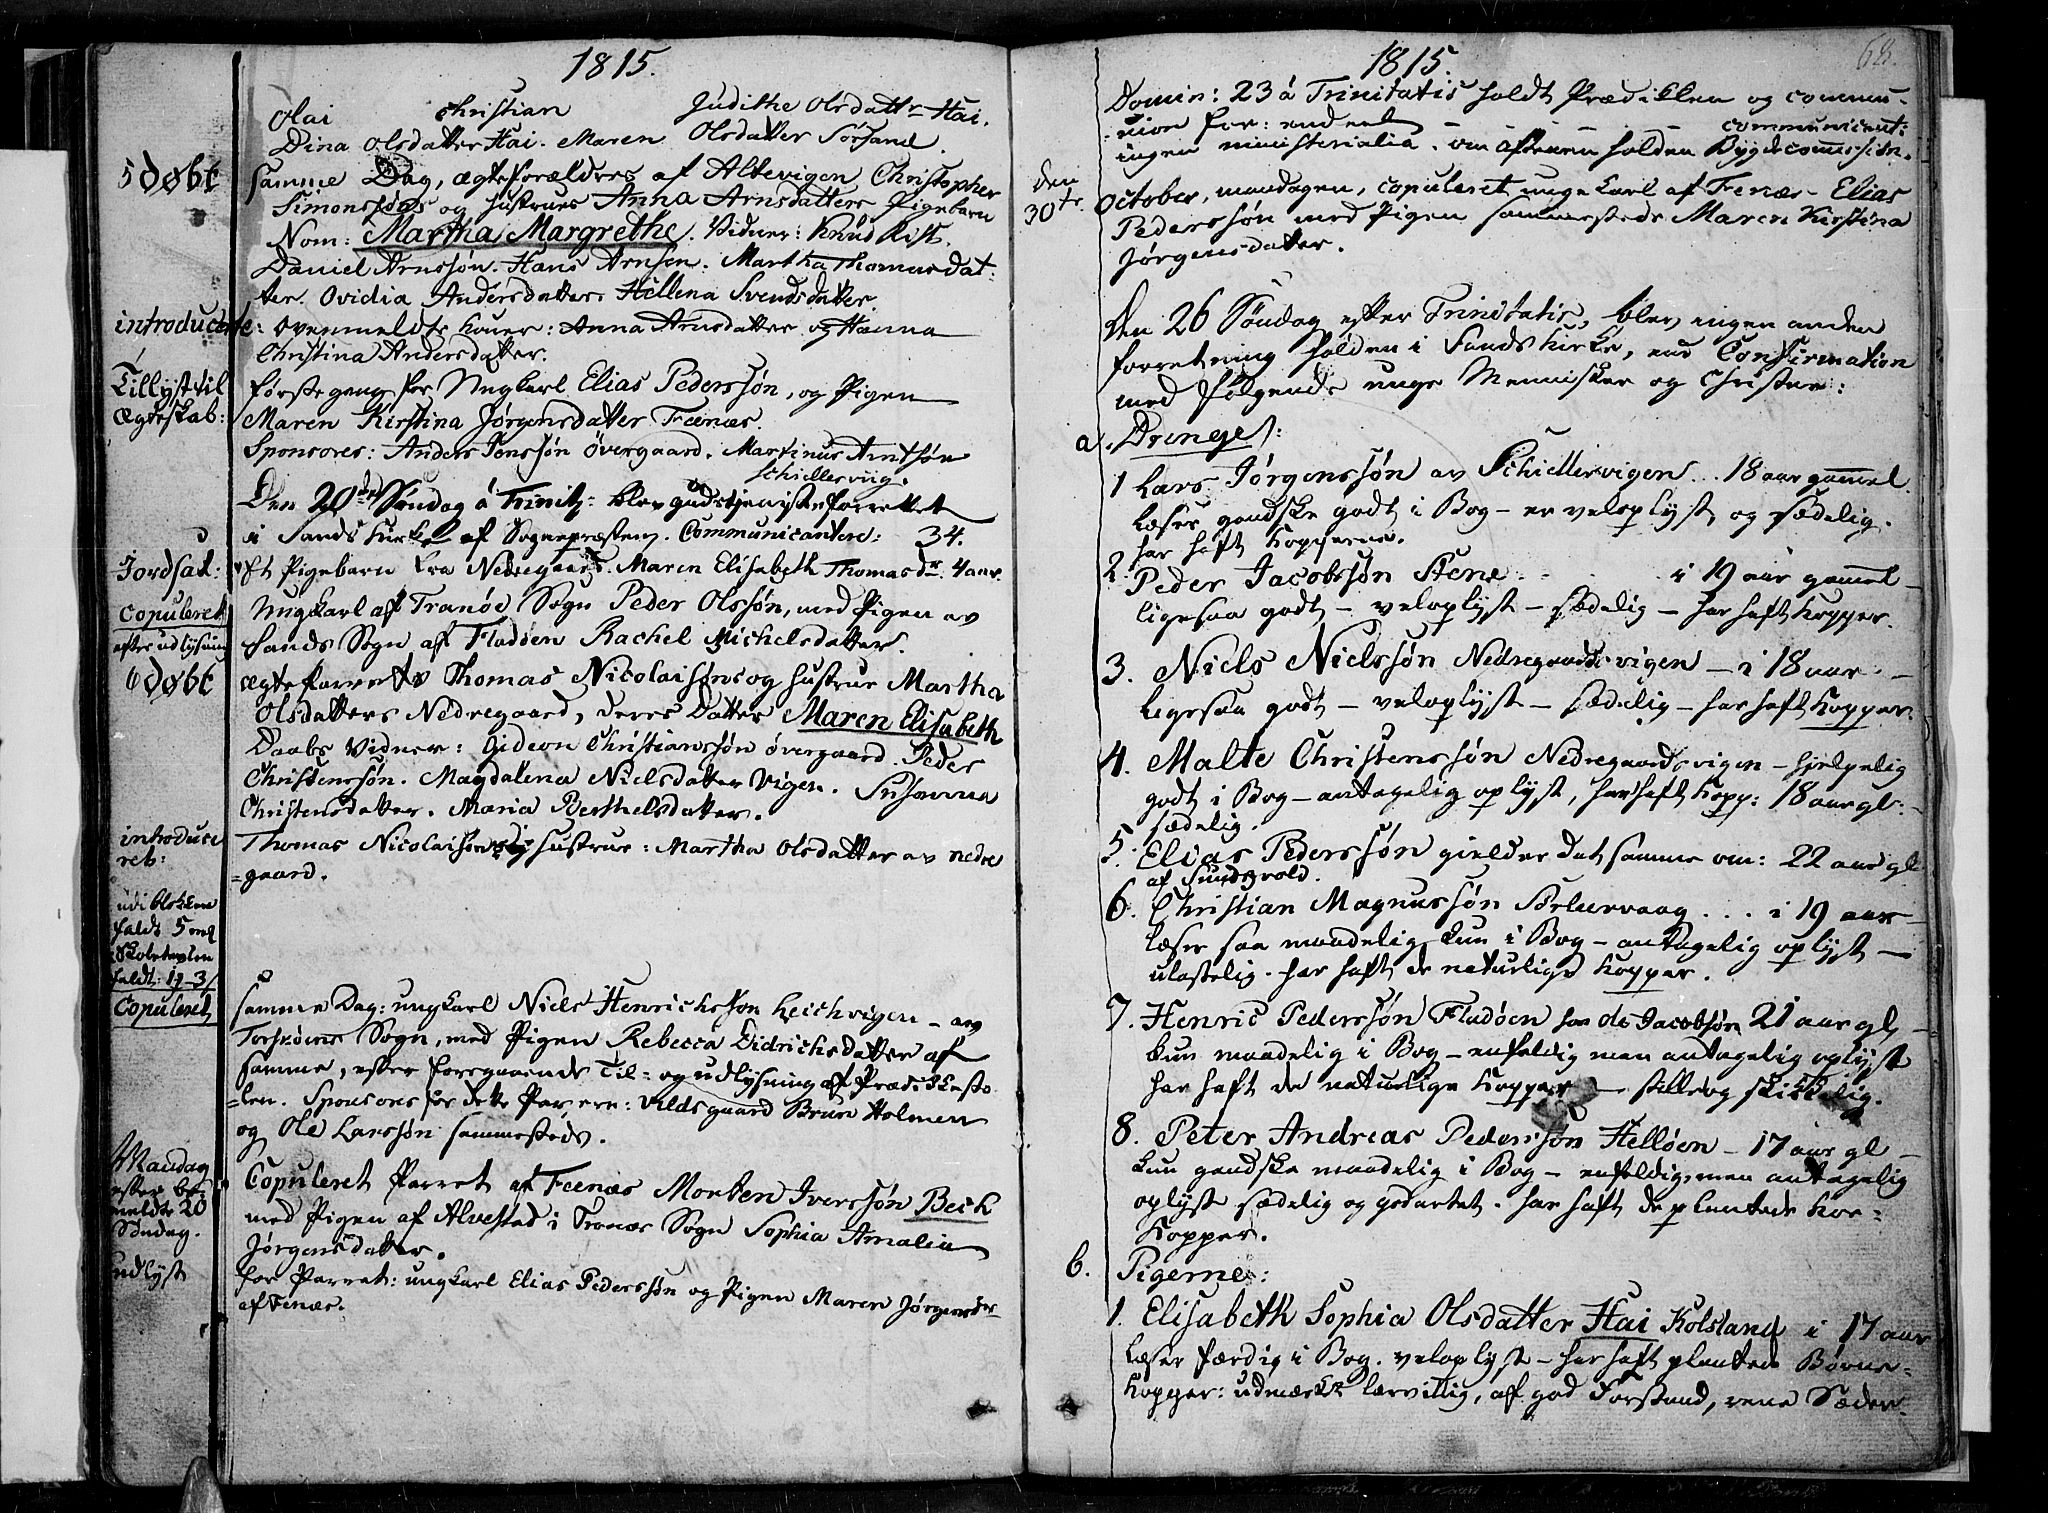 1815.
Olai Christian Judithe Olsdattr Hai.
Dina Olsdatter Hai. Maren Olsdatter Sørsand.
5 døbt
samme Dag, ægteforældres af Altevigen Christopher
Simonssøns og Hustrues Anna Arnsdatters Pigebarn
Nom: Martha Margrethe. Vidner: Knud Kist.
Daniel Arnssøn. Hans Arnsen. Martha Thomasdat-
ter. Ovidia Andersdatter. Hellena Svendsdatter.
introducerte: ovenmeldte Koner: Anna Arnsdatter og Hanna
Christina Andersdatter.
Tillyst til
Ægteskab:
første gang for Ungkarl Elias Pederssøn, og Pigen
Maren Kirstina Jørgensdatter Feenæs.
Sponsores: Anders Jenssøn Øvergaard. Martinus Arntsøn
Schiellerviig.
Den 20de Søndag á Trinit: blev gudstjeniste forrettet
i Sands Kirke af Sognepræsten. Communicantere: 34.
Jordfæst:
et Pigebarn fra Nedregaard. Maren Elisabeth Thomasdr. 4 aar.
Copuleret
efter udlysning
Ungkarl af Tranøe Sogn Peder Olssøn, med Pigen av
Sands Sogn af Fladøen Rachel Michelsdatter.
6 døbt
ægteparrets Thomas Nicolaisøns og Hustrue Martha
Olsdatters Nedregaard, deres Datter Maren Elisabeth
Daabs Vidner: Gideon Christianssøn Øvergaard. Peder
Christenssøn. Magdalena Nielsdatter Vigen. Susanna
Christensdatter. Maria Berthelsdatter.
introduce
ret:
Thomas Nicolaisøns Hustrue: Martha Olsdatter av Nedre
=gaard.
udi blokkene
faldt 5 mk
Skoletavlen
faldt: 1
Copuleret
samme Dag: ungkarl Niels Henrichssøn Leichvigen - av
Torskøens Sogn, med Pigen Rebecca Didrichsdatter af
samme, efter foregaaende Til- og udlysning af Prædikesto
-len. Sponsores for dette Par, ere: Vildsgaard Bruun Holmen
og Ole Larssøn sammesteds.
Mandag
efter be-
meldte 20
Søndag.
Copuleret Parret af Feenæs Morten Iverssøn Bech
med Pigen af Alvestad i Tranøe Sogn Sophia Amalia
Jørgensdatter.
udlyst
for Parret: ungkarl Elias Pederssøn og Pigen Maren Jørgensdr
af Fenæs.
1815.
68.
Domin: 23 á Trinitatis holdt Prædiken og commu-
-nion for: endeel communicent:
ingen ministerialia. om Aftenen holden Bygdecommission.
den
30te
October, mandagen, copuleret unge Karl af Fenæs - Elias
Pederssøn med Pigen sammesteds Maren Kirstina
Jørgensdatter.
Den 26 Søndag efter Trinitatis, blev ingen anden
forretning holden i Sands Kirke, end Confirmation
med følgende unge Mennisker og Christne:
a. Drenge:
1 Lars Jørgenssøn av Schiellervigen... 18 aar gammel.
læser gandske godt i Bog - er veloplyst, og sædelig.
har haft Kopperne.
2. Peder Jacobssøn Stene . . . i 19 aar gammel
ligesaa godt - veloplyst - sædelig - har haft Kopper.
3. Niels Nielssøn Nedregaardsvigen - i 18 aar -
ligesaa godt - veloplyst - sædelig - har haft Kopper.
4. Malte Christenssøn Nedregaardsvigen - hielpelig
godt i Bog - antagelig oplyst, har haft Kopp: 18 aar gl:
sædelig.
5. Elias Pederssøn gielder det samme om: 22 aar gl
af Sundsvold.
6. Christian Magnussøn Sørlervaag . . . i 19 aar
læser saa maadelig kun i Bog - antagelig oplyst -
ulastelig. har haft de naturlige Kopper.
7. Henric Pederssøn Fladøen 21 aar gl
kun maadelig i Bog - enfoldig men antagelig oplyst
har haft de naturlige Kopper - stille og skikkelig.
8. Peter Andreas Pederssøn Helløen - 17 aar gl -
kun gandske maadelig i Bog - enfoldig, men antagelig
oplyst sædelig og godartet. har haft de plantede Koe-
Kopper.
b. Pigerne:
1. Elisabeth Sophia Olsdatter Hai Kolsland i 17 aar
læser færdig i Bog. veloplyst - har haft plantede Børne-
Kopper: udmærket lærvillig, af god Forstand, rene Sæder.